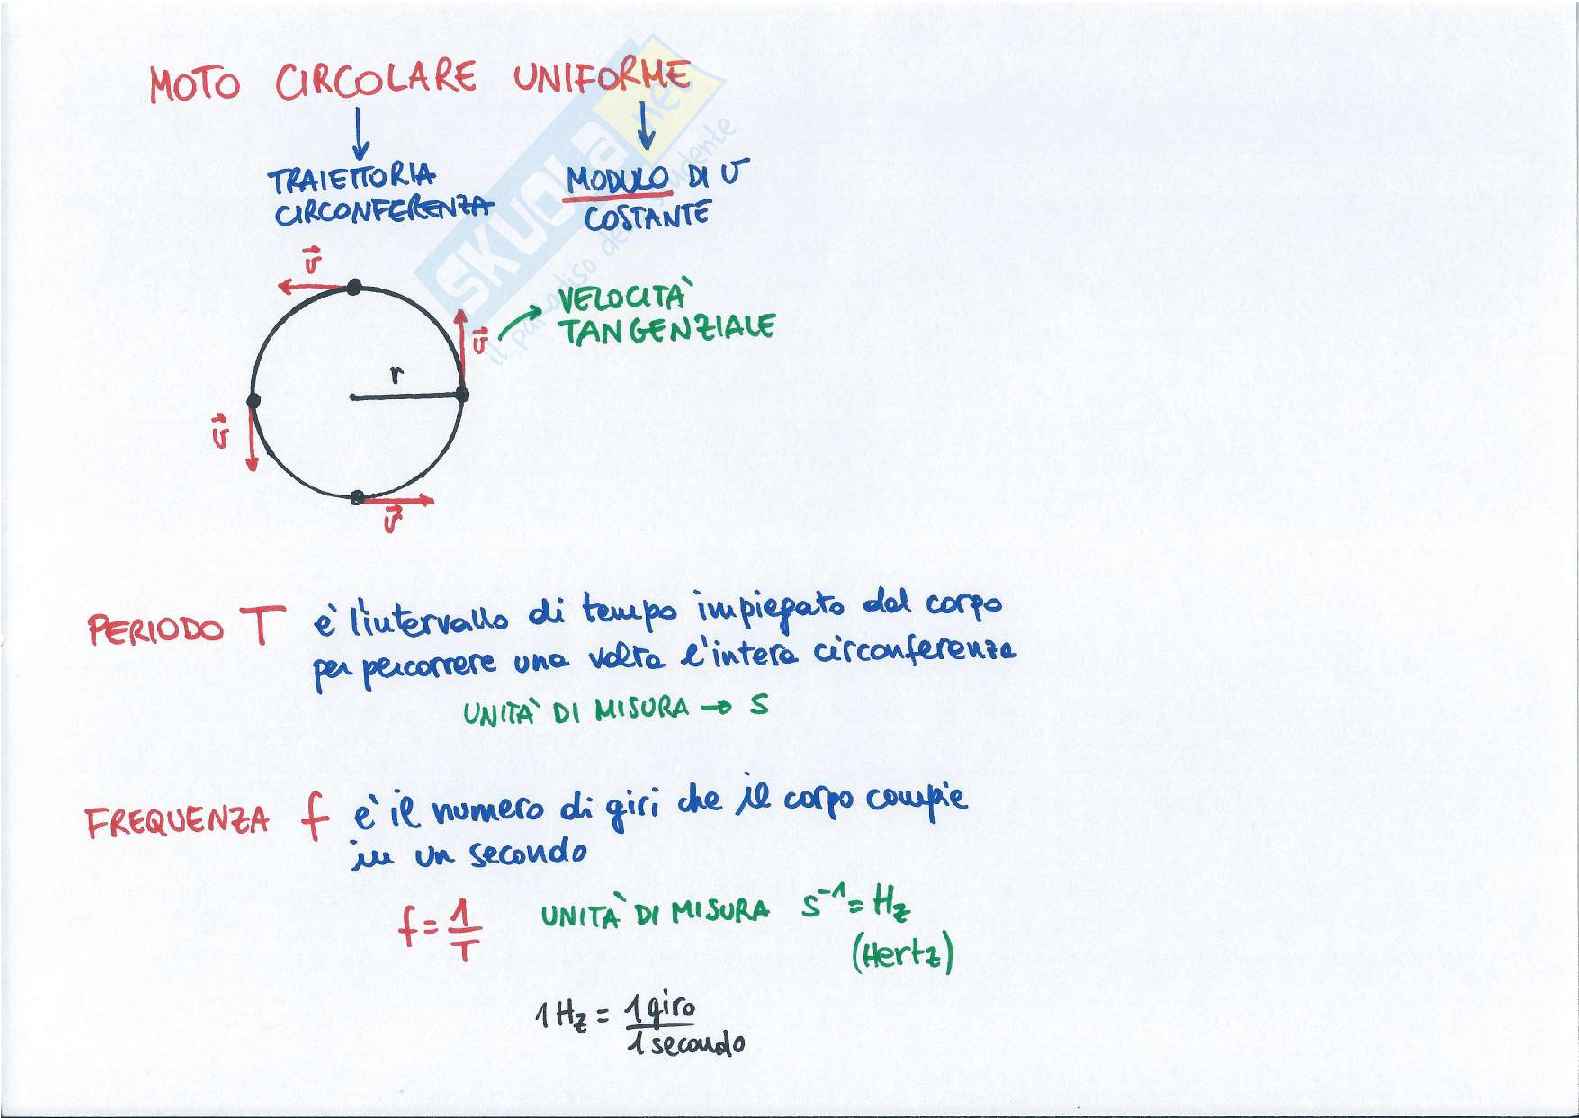 MOTO CIRCOLARE UNIFORME
TRAIETTORIA
CIRCONFERENZA
MODULO DI v
COSTANTE
SKUOLA.net
il paradiso dello studente
v⃗
v⃗
VELOCITÀ
TANGENZIALE
r
v⃗
v⃗
PERIODO T è l'intervallo di tempo impiegato dal corpo
per percorrere una volta l'intera circonferenza
UNITÀ DI MISURA → s
FREQUENZA f è il numero di giri che il corpo compie
in un secondo
f = 1/T UNITÀ DI MISURA s⁻¹ = Hz
(Hertz)
1 Hz = 1 giro
1 secondo